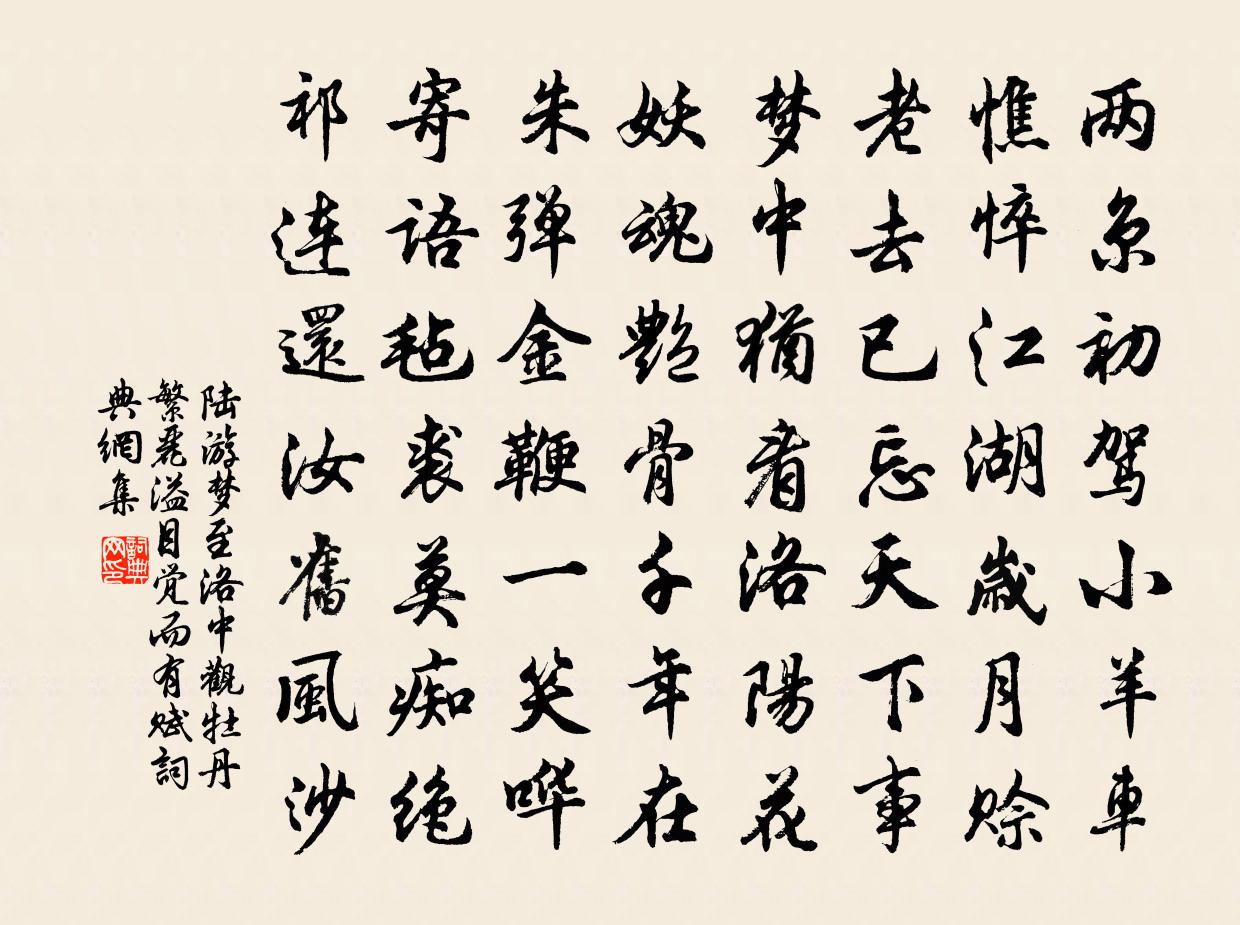 两京初驾小羊車
憔悴江湖歳月赊
老去已忘天下事
梦中猶看洛陽花
妖魂艶骨千年在
朱弹金鞭一笑哗
寄语毡裘莫痴绝
祁连還汝舊風沙
陆游梦至洛中觀牡丹
繁麗溢目觉而有赋詞
典網集
詞典网印